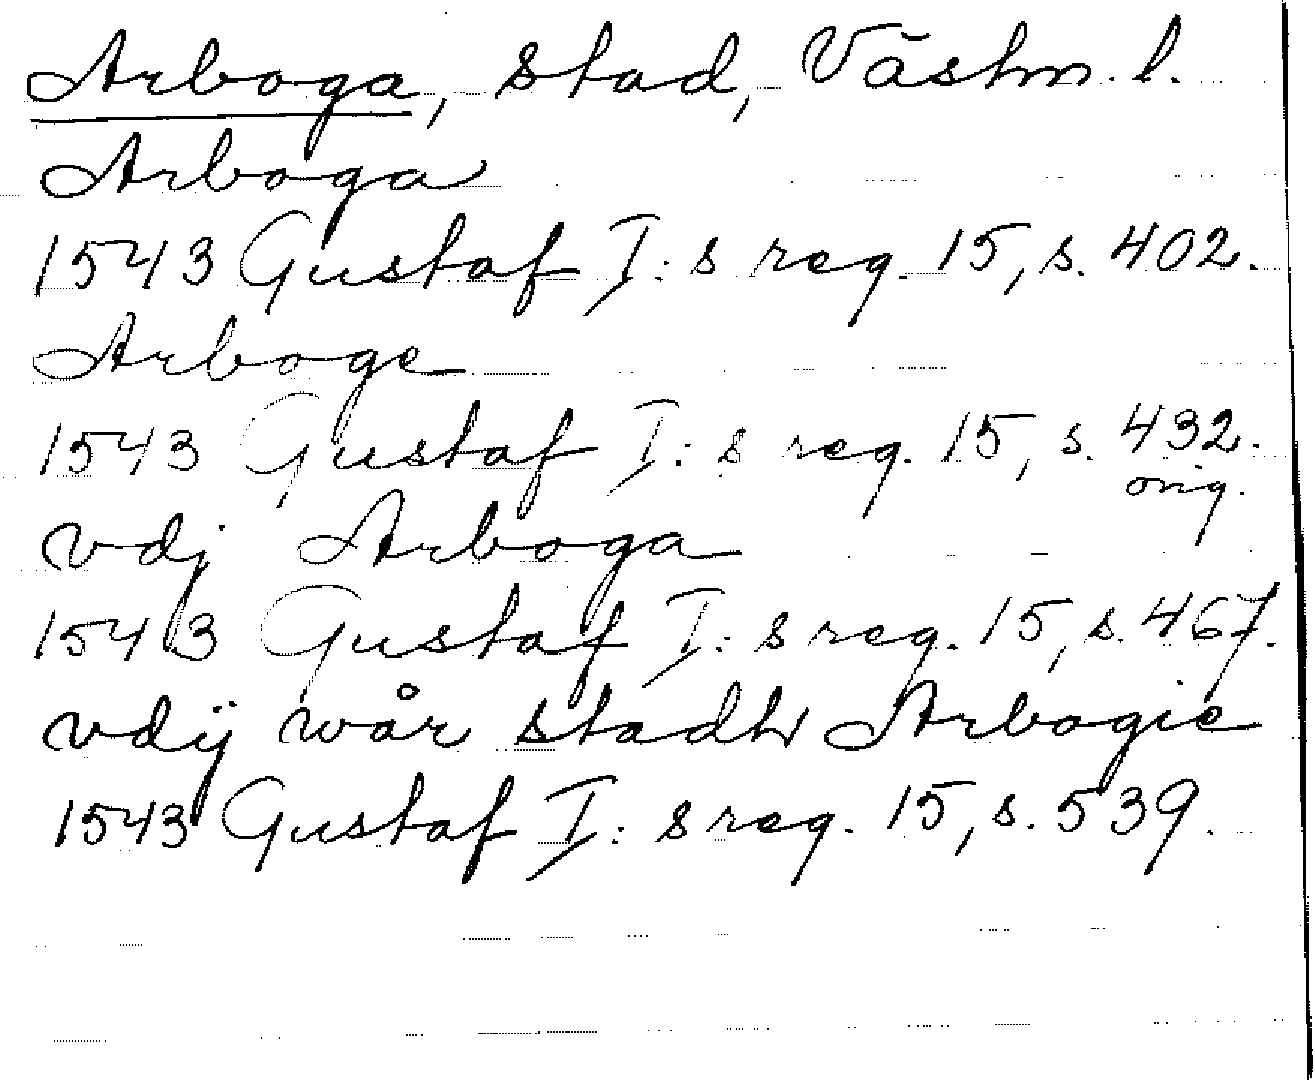 Arboga, stad, Västm. l.
Arboga
1543 Gustaf I:s reg. 15, s. 402.
Arboge
1543 Gustaf I:s reg. 15, s. 432.
orig.
vdj Arboga
1543 Gustaf I:s reg. 15, s. 467.
vdÿ wår stadh Arbogie
1543 Gustaf I:s reg. 15, s. 539.